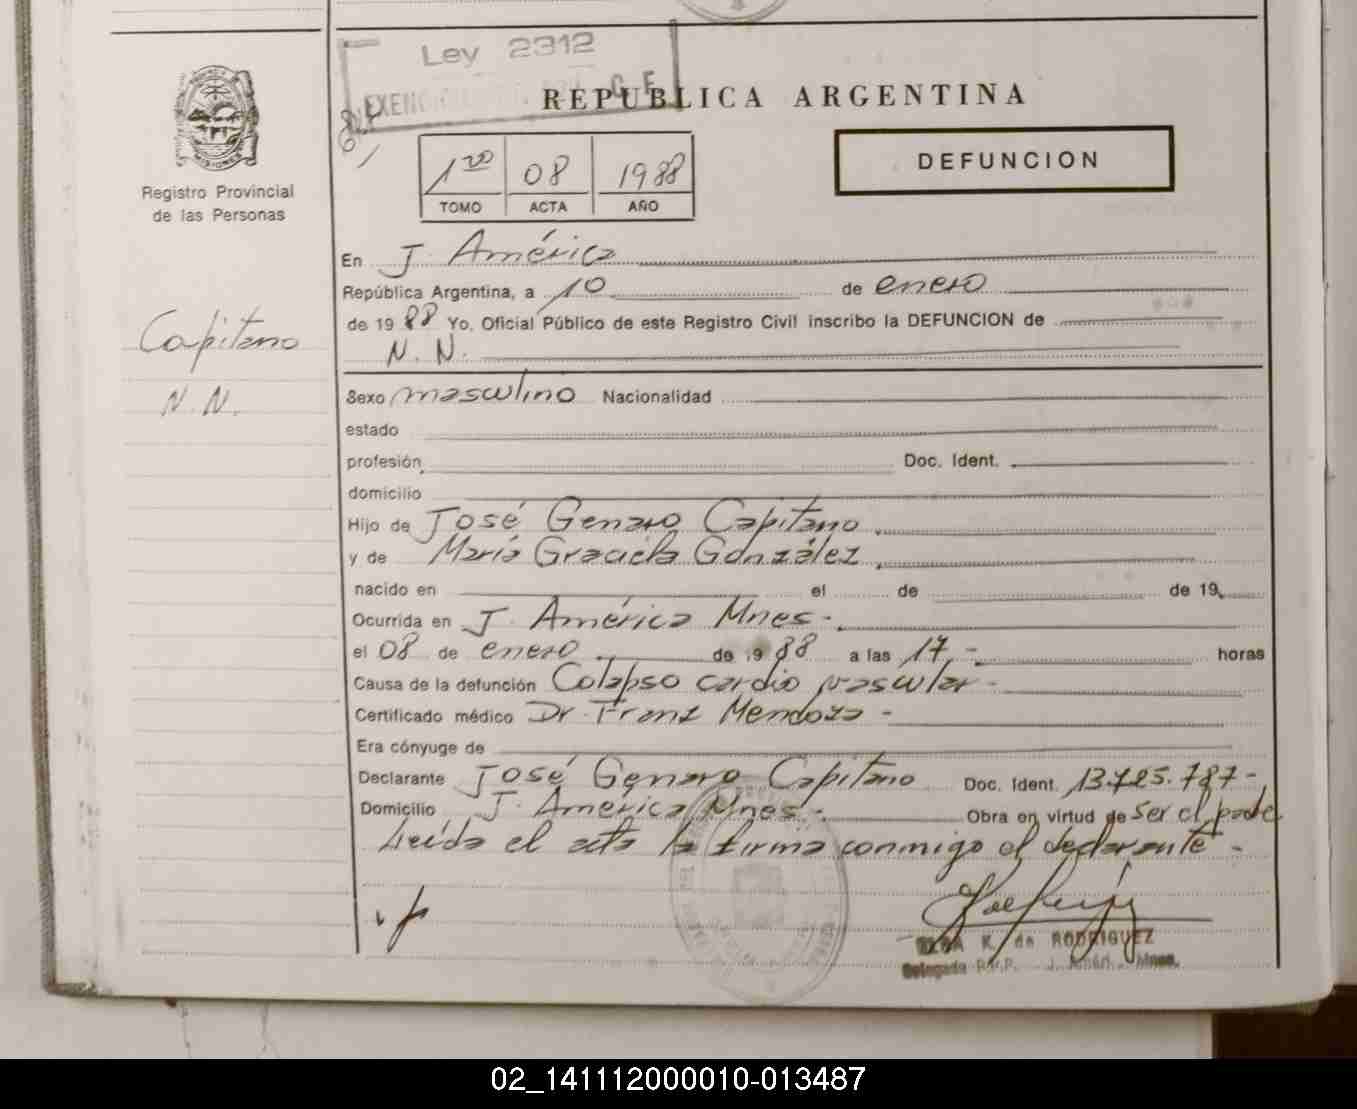 Ley 2312
EXENC
REPUBLICA ARGENTINA
MISIONES
Registro Provincial
de las Personas
DEFUNCION
1ro 08 1988
TOMO ACTA AÑO
En J. América
República Argentina, a 10 de enero
de 1988 Yo, Oficial Público de este Registro Civil inscribo la DEFUNCION de
N.N.
Capitano
N.N.
Sexo masculino Nacionalidad
estado
profesión Doc. Ident.
domicilio
Hijo de José Genaro Capitano
y de María Graciela González
nacido en el de de 19
Ocurrida en J. América Mnes -
el 08 de enero de 1988 a las 17.- horas
Causa de la defunción Colapso cardio vascular -
Certificado médico Dr. Franz Mendoza -
Era cónyuge de
Declarante José Genaro Capitano Doc. Ident. 13.725.787-
Domicilio J. América Mnes - Obra en virtud de ser el padre
Leída el acta la firma conmigo el declarante -
K. de RODRIGUEZ
Delegada R.P.P. J. Amér. Mnes.
02_141112000010-013487